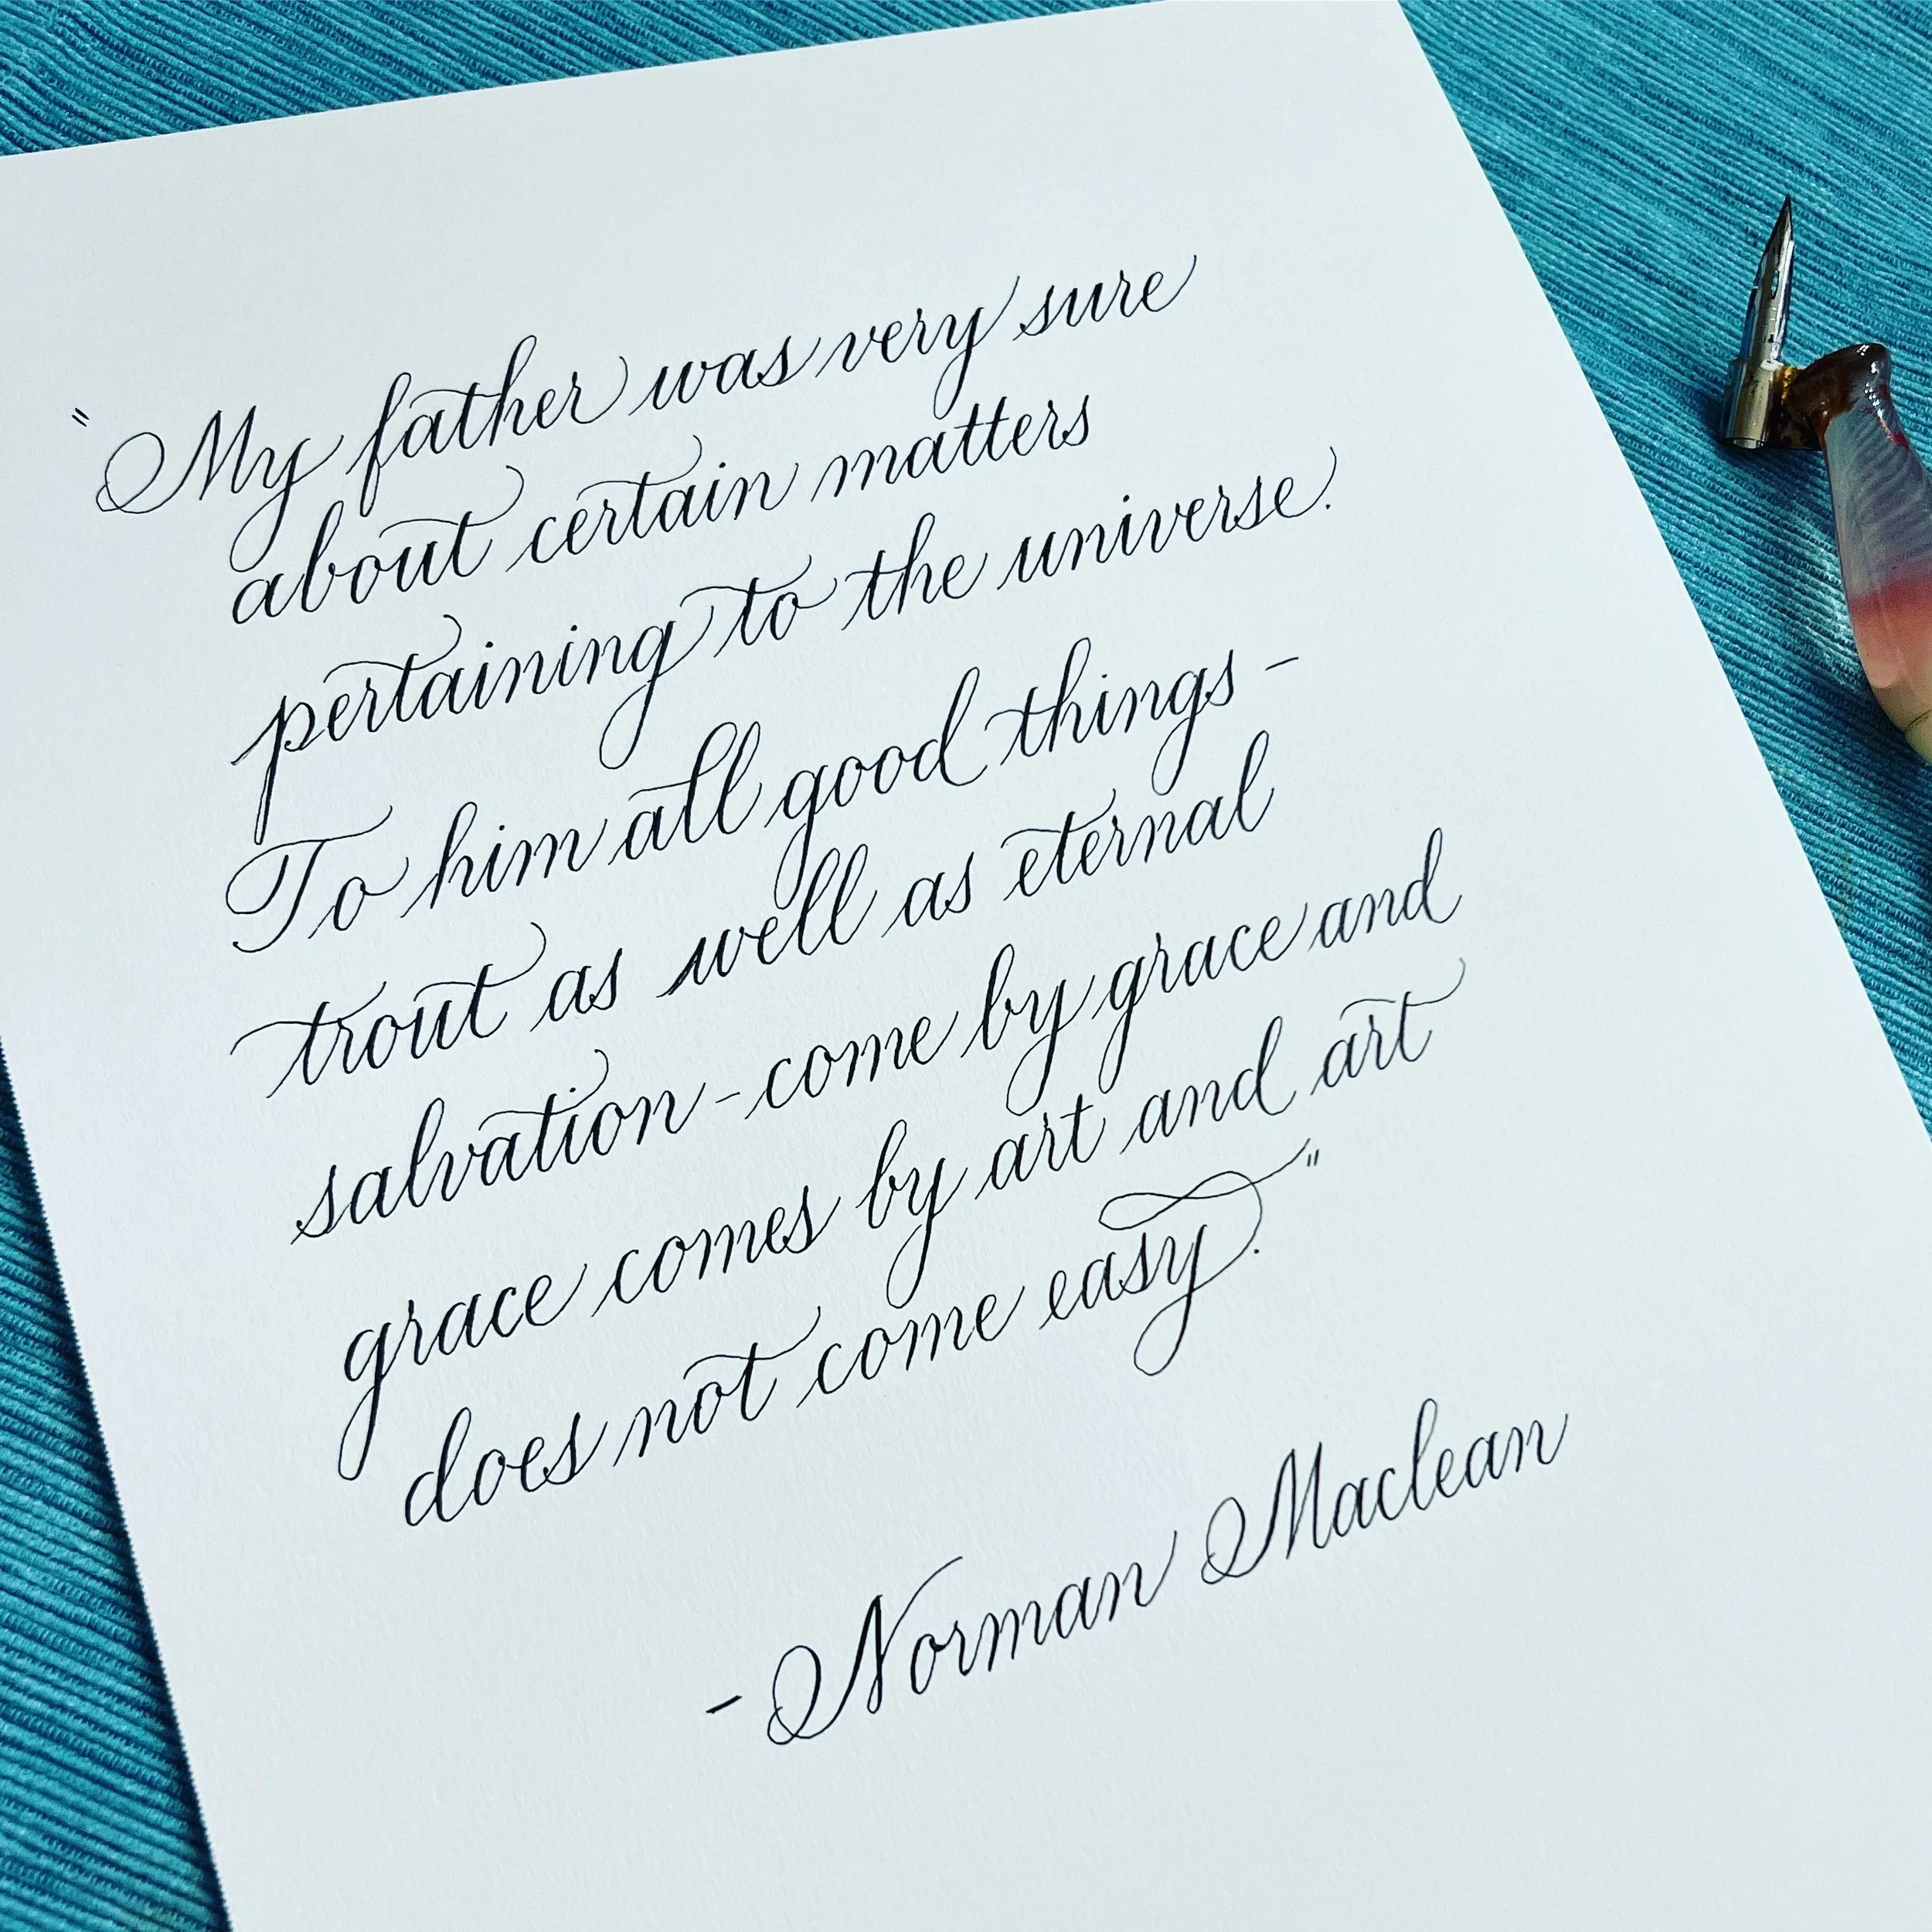 "My father was very sure
about certain matters
pertaining to the universe.
To him all good things -
trout as well as eternal
salvation - come by grace and
grace comes by art and art
does not come easy."
- Norman Maclean